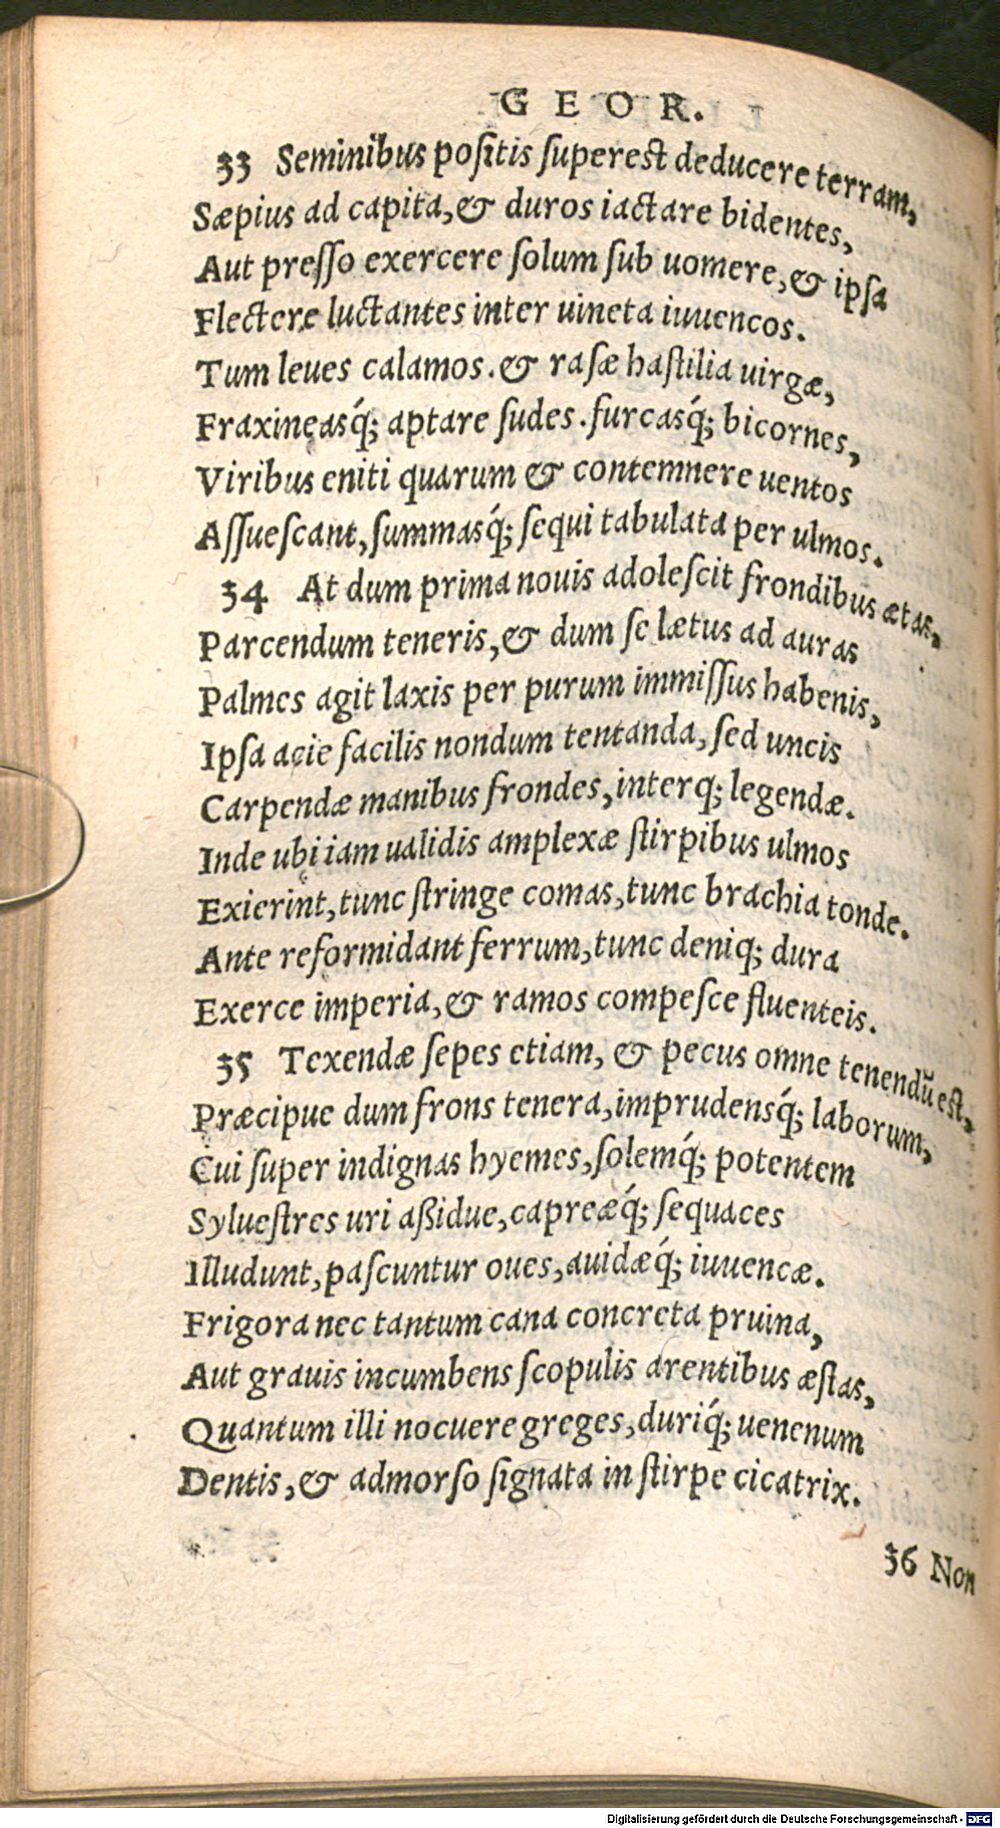 GEOR.
33 Seminibus poſitis ſupereſt deducere terram,
Sæpius ad capita,& duros iactare bidentes,
Aut preſſo exercere ſolum ſub uomere,& ipſa
Flectere luctantes inter uineta iuuencos.
Tum leues calamos.& raſæ haſtilia uirgæ,
Fraxineasq́; aptare ſudes.furcasq́; bicornes,
Viribus eniti quarum & contemnere uentos
Aſſueſcant,ſummasq́; ſequi tabulata per ulmos.
34 At dum prima nouis adoleſcit frondibus ætas,
Parcendum teneris,& dum ſe lætus ad auras
Palmes agit laxis per purum immiſſus habenis,
Ipſa acie facilis nondum tentanda,ſed uncis
Carpendæ manibus frondes,interq; legendæ.
Inde ubi iam ualidis amplexæ ſtirpibus ulmos
Exierint,tunc ſtringe comas,tunc brachia tonde.
Ante reformidant ferrum,tunc deniq; dura
Exerce imperia,& ramos compeſce fluenteis.
35 Texendæ ſepes etiam, & pecus omne tenendũ eſt,
Præcipue dum frons tenera,imprudensq́; laborum,
Cui ſuper indignas hyemes,ſolemq́; potentem
Sylueſtres uri aßidue,capreæq́; ſequaces
Illudunt,paſcuntur oues,auidæq́; iuuencæ.
Frigora nec tantum cana concreta pruina,
Aut grauis incumbens ſcopulis arentibus æſtas,
Quantum illi nocuere greges,duriq́; uenenum
Dentis,& admorſo ſignata in ſtirpe cicatrix.
36 Non
Digitalisierung gefördert durch die Deutsche Forschungsgemeinschaft - DFG